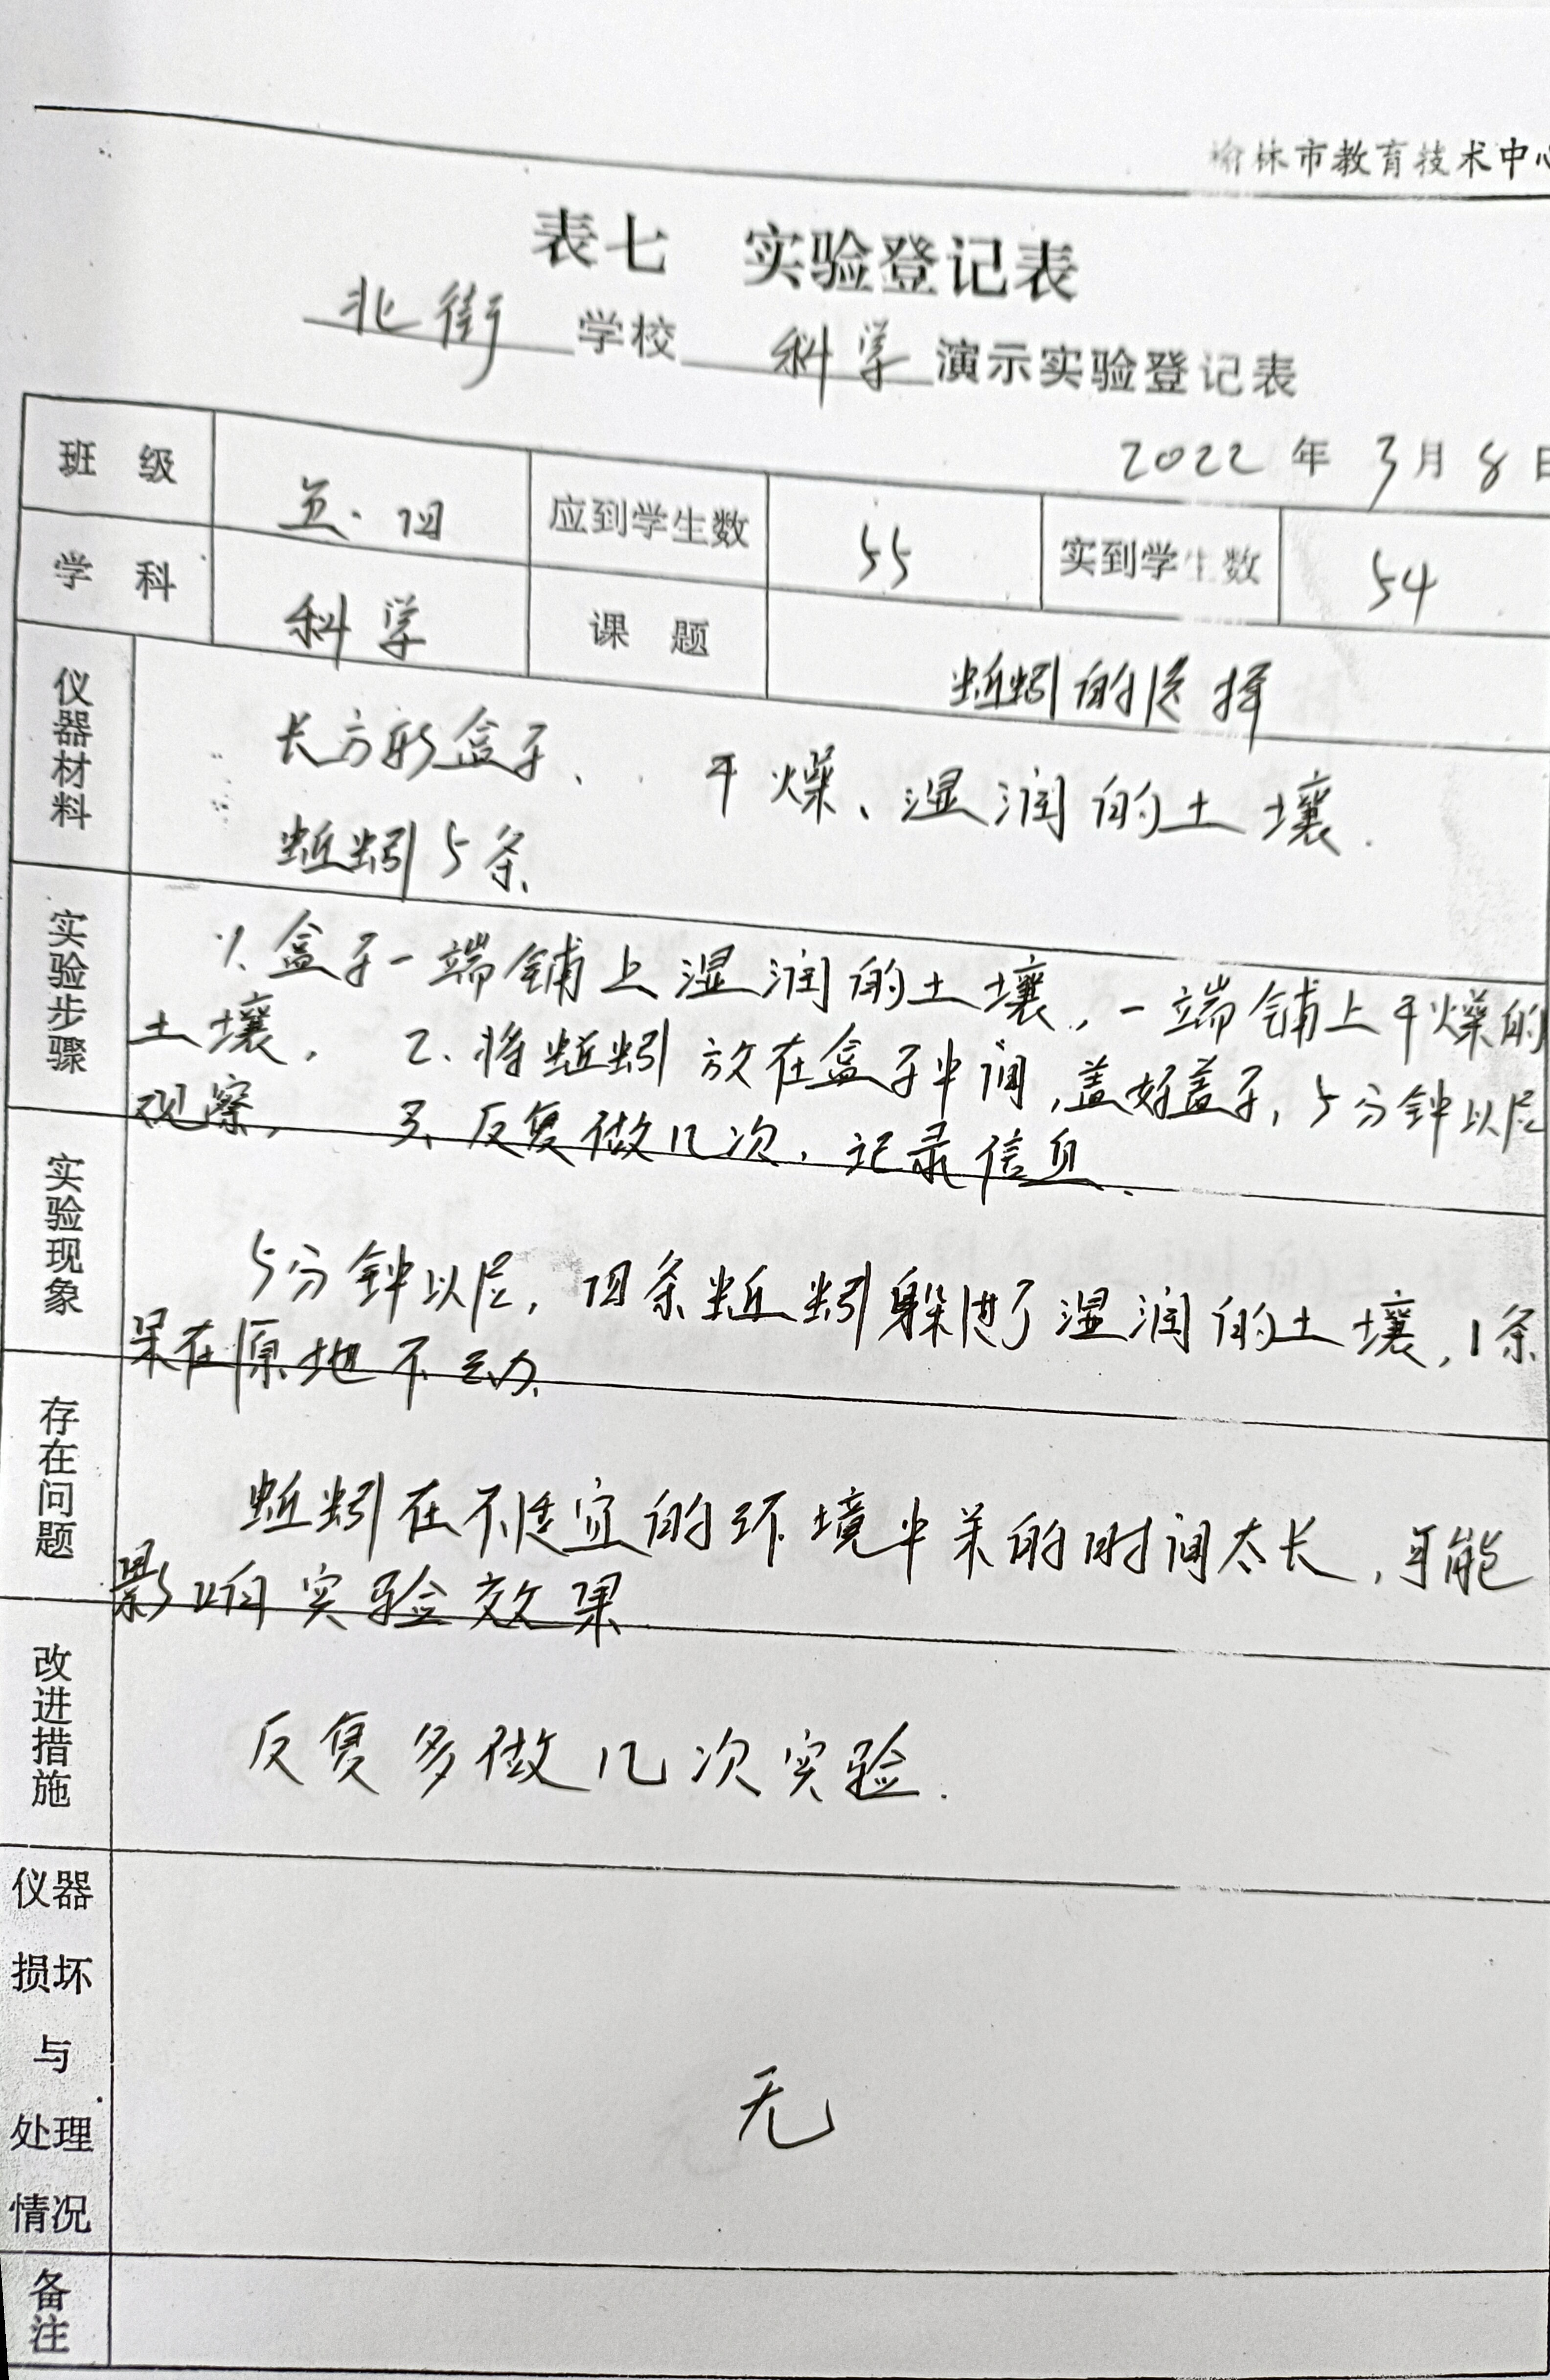 榆林市教育技术中心
表七 实验登记表
北街 学校 科学 演示实验登记表
2022 年 3月 8日
班 级 五.四 应到学生数 55 实到学生数 54
学 科 科学 课 题 蚯蚓的选择
仪器材料
长方形盒子、 干燥、湿润的土壤.
蚯蚓5条、
实验步骤
1.盒子一端铺上湿润的土壤,一端铺上干燥的
土壤, 2、将蚯蚓放在盒子中间,盖好盖子,5分钟以后
观察, 3、反复做几次,记录信息、
实验现象
5分钟以后,四条蚯蚓躲进了湿润的土壤,1条
呆在原地不动、
存在问题
蚯蚓在不适宜的环境中呆的时间太长,可能
影响实验效果
改进措施
反复多做几次实验.
仪器
损坏
与
处理
情况
无
备注